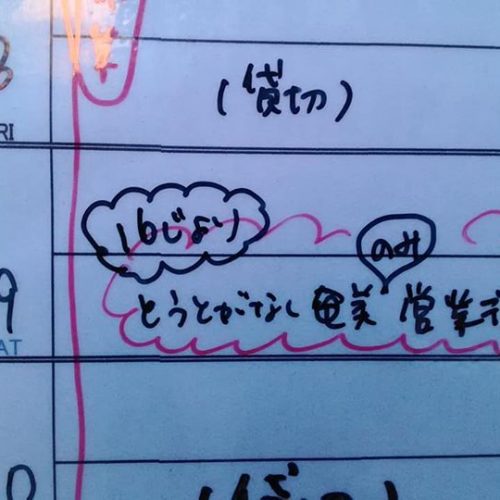 RI
(貸切)
16じより
のみ
とうとがなし奄美 営業
9
AT